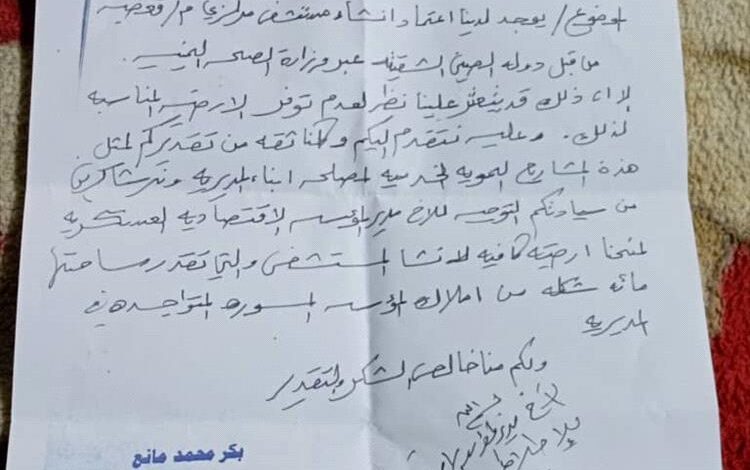 الموضوع/ يوجد لدينا اعتماد انشاء مستشفى مركزي م/قعطبه
من قبل دوله الصين الشقيقه عبر وزارة الصحه اليمنيه.
الا ان ذلك قد يتعثر علينا نظر لعدم توفر الارضيه المناسبه
لذلك. وعليه نتقدم اليكم وكلنا ثقه من تقديركم لمثل
هذة المشاريع الحيويه الخدميه لمصلحه ابناء المديريه ونكرر شاكرين
من سيادتكم التوجيه للاخ مدير المؤسسه الاقتصاديه العسكريه
لمنحنا ارضيه كافيه لانشا المستشفى والتي تقدر مساحتها
مائه من املاك المؤسسه المتواجده في
المديريه
ولكم منا خالص الشكر والتقدير
بكر محمد مانع